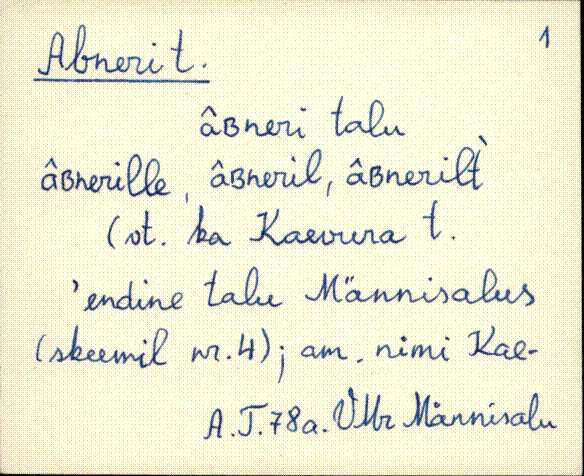 Abneri t. 1
âʙneri talu
âʙnerille, âʙneril, âʙnerilt̀
(vt. ka Kaevura t.
'endine talu Männisalus
(skeemil nr. 4); am. nimi Kae-
A.T. 78a. VMr Männisalu